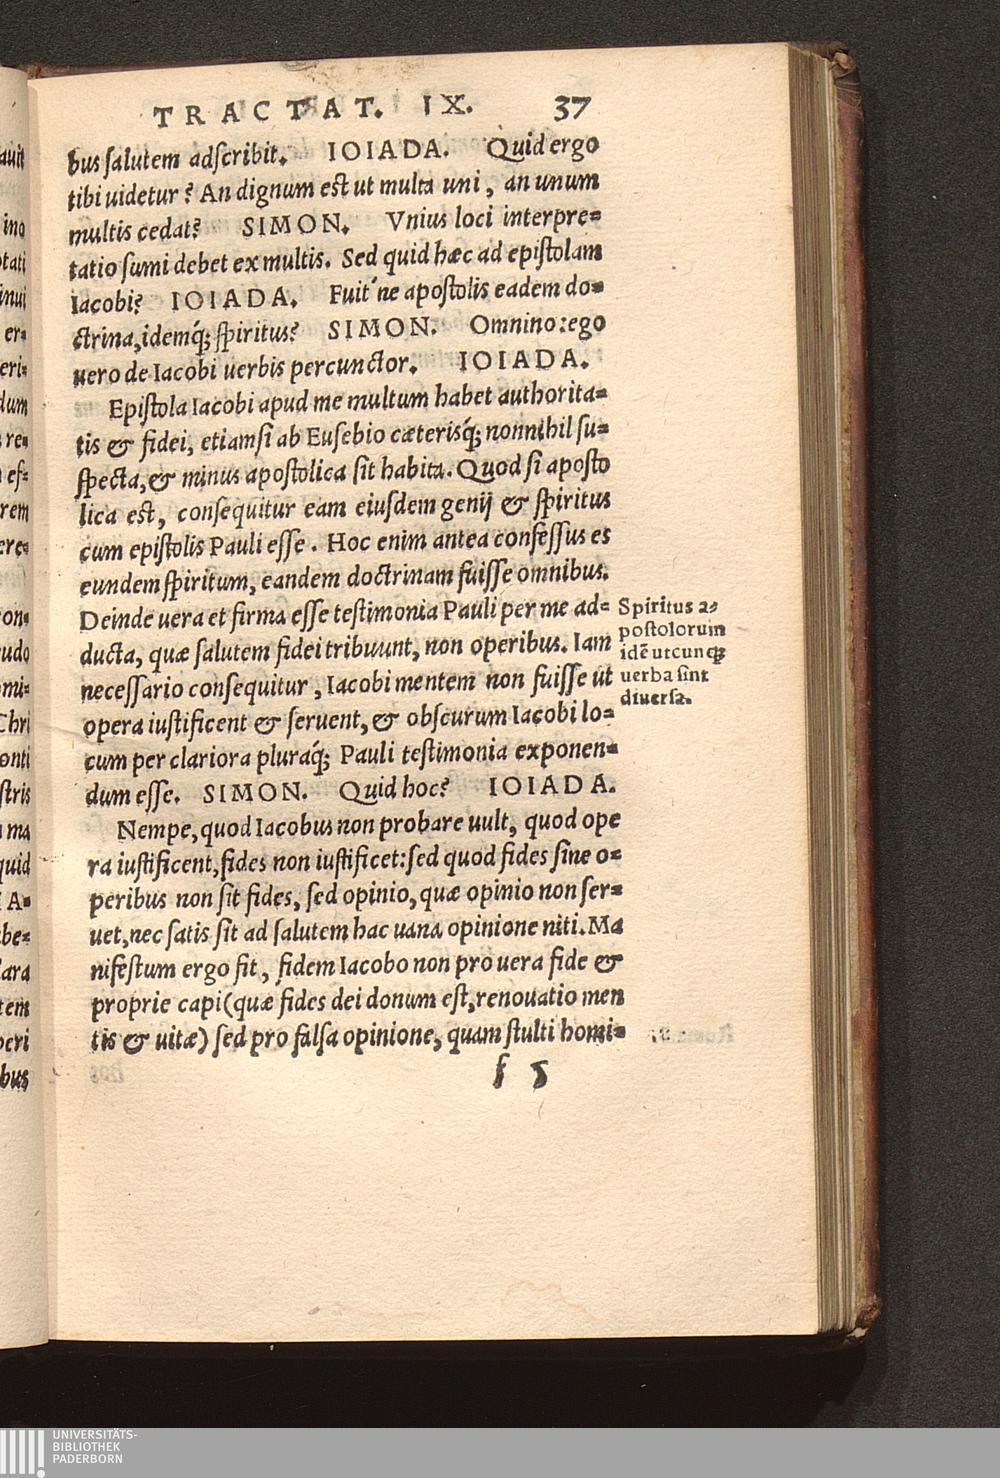 TRACTAT. IX. 37
bus salutem adscribit. IOIADA. Quid ergo
tibi uidetur? An dignum est ut multa uni, an unum
multis cedat? SIMON. Vnius loci interpre=
tatio sumi debet ex multis. Sed quid hæc ad epistolam
Iacobi? IOIADA. Fuit'ne apostolis eadem do=
ctrina, idemq́; spiritus? SIMON. Omnino: ego
uero de Iacobi uerbis percunctor. IOIADA.
Epistola Iacobi apud me multum habet authorita=
tis & fidei, etiamsi ab Eusebio cæterisq́; nonnihil su=
specta, & minus apostolica sit habita. Quod si aposto
lica est, consequitur eam eiusdem genij & spiritus
cum epistolis Pauli esse. Hoc enim antea confessus es
eundem spiritum, eandem doctrinam fuisse omnibus.
Deinde uera et firma esse testimonia Pauli per me ad=
ducta, quæ salutem fidei tribuunt, non operibus. Iam
necessario consequitur, Iacobi mentem non fuisse ut
opera iustificent & seruent, & obscurum Iacobi lo=
cum per clariora pluraq́; Pauli testimonia exponen=
dum esse. SIMON. Quid hoc? IOIADA.
Nempe, quod Iacobus non probare uult, quod ope
ra iustificent, fides non iustificet: sed quod fides sine o=
peribus non sit fides, sed opinio, quæ opinio non ser=
uet, nec satis sit ad salutem hac uana opinione niti. Ma
nifestum ergo fit, fidem Iacobo non pro uera fide &
proprie capi (quæ fides dei donum est, renouatio men
tis & uitæ) sed pro falsa opinione, quam stulti homi=
f 5
Spiritus a=
postolorum
idē utcunq;
uerba sint
diuersa.
auit
ino
tati
inui
er=
eri=
dum
re=
ef=
rem
ere=
on=
udo
mi=
Chri
onti
stris
ma
quid
A=
be=
lara
tem
peri
bus
UNIVERSITÄTS-
BIBLIOTHEK
PADERBORN